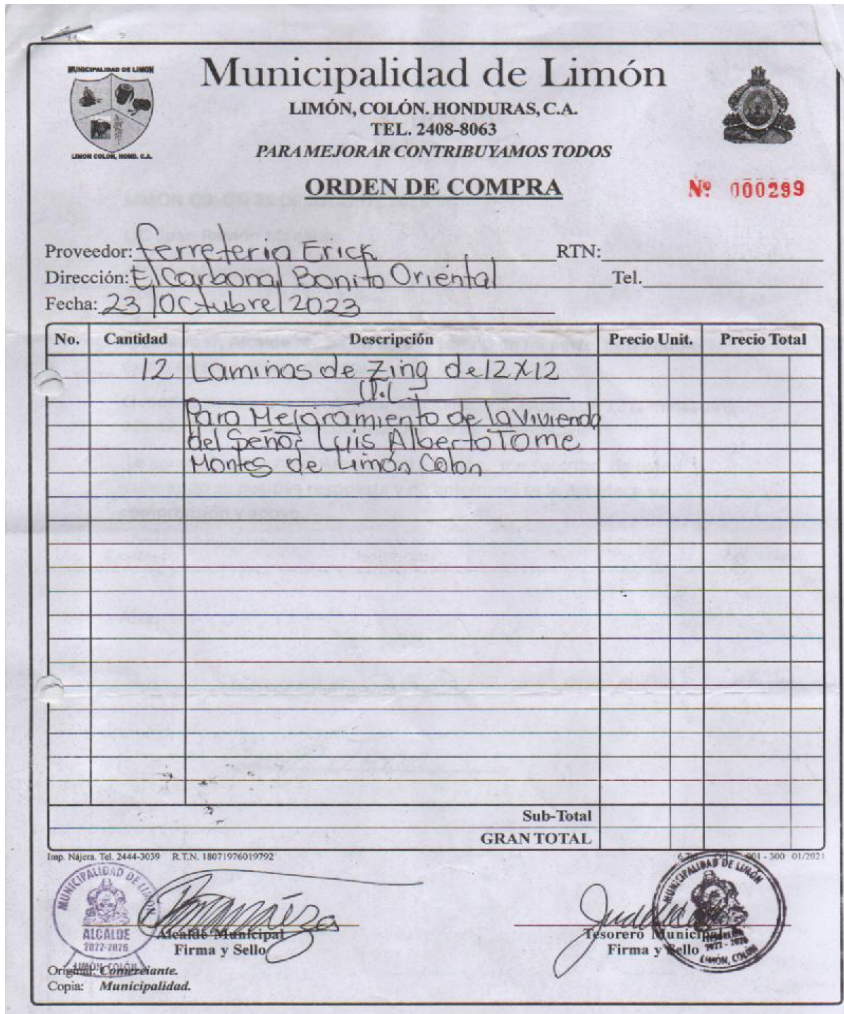 MUNICIPALIDAD DE LIMON
LIMON COLON, HOND. C.A.
Municipalidad de Limón
LIMÓN, COLÓN. HONDURAS, C.A.
TEL. 2408-8063
PARA MEJORAR CONTRIBUYAMOS TODOS
ORDEN DE COMPRA
Nº 000299
Proveedor: Ferreteria Erick RTN:
Dirección: El Carbonal Bonito Oriental Tel.
Fecha: 23/Octubre/2023
No. Cantidad Descripción Precio Unit. Precio Total
12 Laminas de Zing de 12X12
U.L
Para Mejoramiento de la Vivienda
del Señor Luis Alberto Tome
Montes de Limón Colon
Sub-Total
GRAN TOTAL
Imp. Nájera. Tel. 2444-3039 R.T.N. 18071976019792 001 - 300 01/2021
MUNICIPALIDAD DE LIMÓN
ALCALDE
2022-2026
LIMÓN, COLÓN
Alcalde Municipal
Firma y Sello
MUNICIPALIDAD DE LIMÓN
2022 - 2026
LIMÓN, COLÓN
Tesorero Municipal
Firma y Sello
Original: Comerciante.
Copia: Municipalidad.